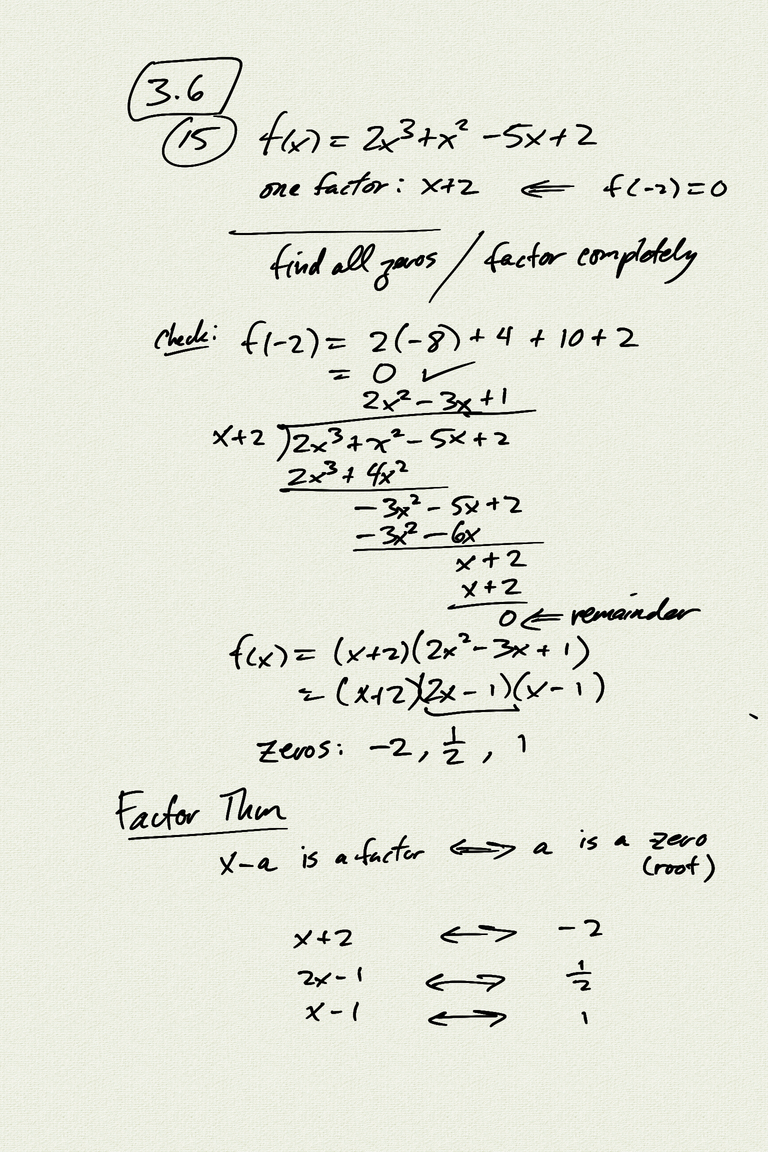 3.6
15 f(x) = 2x³+x² -5x+2
one factor: x+2 ⇐ f(-2)=0
find all zeros / factor completely
Check: f(-2) = 2(-8) + 4 + 10 + 2
= 0 ✓
2x² - 3x + 1
x+2 )2x³ + x² - 5x + 2
2x³ + 4x²
-3x² - 5x + 2
-3x² - 6x
x + 2
x + 2
0 ⇐ remainder
f(x) = (x+2)(2x² - 3x + 1)
= (x+2)(2x - 1)(x - 1)
Zeros: -2, 1/2, 1
Factor Thm
x-a is a factor ⟺ a is a zero
(root)
x+2 ⟷ -2
2x-1 ⟷ 1/2
x-1 ⟷ 1